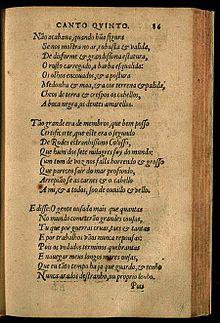 CANTO QVINTO. 86
Não acabaua, quando hũa figura
Se nos mostra no ar, robusta & valida,
De disforme & grandissima estatura,
O rosto carregado, a barba esqualida:
Os olhos encouados, & a postura
Medonha & má, & a cor terrena & palida,
Cheos de terra & crespos os cabellos,
A boca negra, os dentes amarellos.
Tão grande era de membros, que bem posso
Certificarte, que este era o segundo
De Rodes estranhissimo Colosso,
Que hum dos sete milagres foy do mundo:
Cum tom de voz nos falla horrendo & grosso
Que pareceo sair do mar profundo,
Arrepião se as carnes & o cabello
A mi, & a todos, so de ouuilo & vello.
E disse: O gente ousada mais que quantas
No mundo cometerão grandes cousas,
Tu que por guerras cruas, taes & tantas
E por trabalhos vãos nunca repousas:
Pois os vedados terminos quebrantas
E nauegar meus longos mares ousas,
Que eu tão tempo ha ja que guardo, & tenho
Nunca arados destranho, ou proprio lenho.
Pois